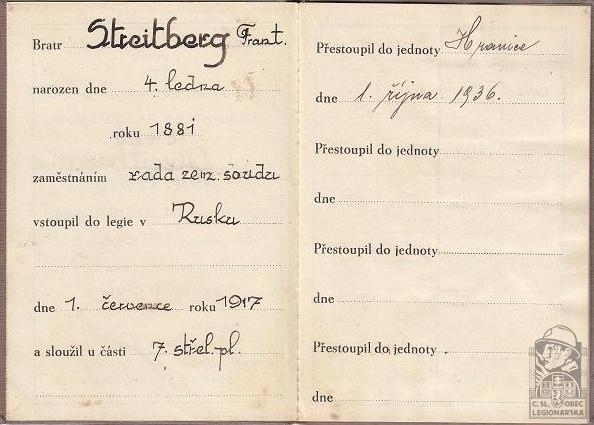 Bratr Streitberg Frant.
narozen dne 4. ledna
roku 1881
zaměstnáním rada zem. soudu
vstoupil do legie v Rusku
dne 1. července roku 1917
a sloužil u části 7. střel. pl.
Přestoupil do jednoty Hranice
dne 1. října 1936.
Přestoupil do jednoty
dne
Přestoupil do jednoty
dne
Přestoupil do jednoty
dne
Č.SL. OBEC
LEGIONÁŘSKÁ